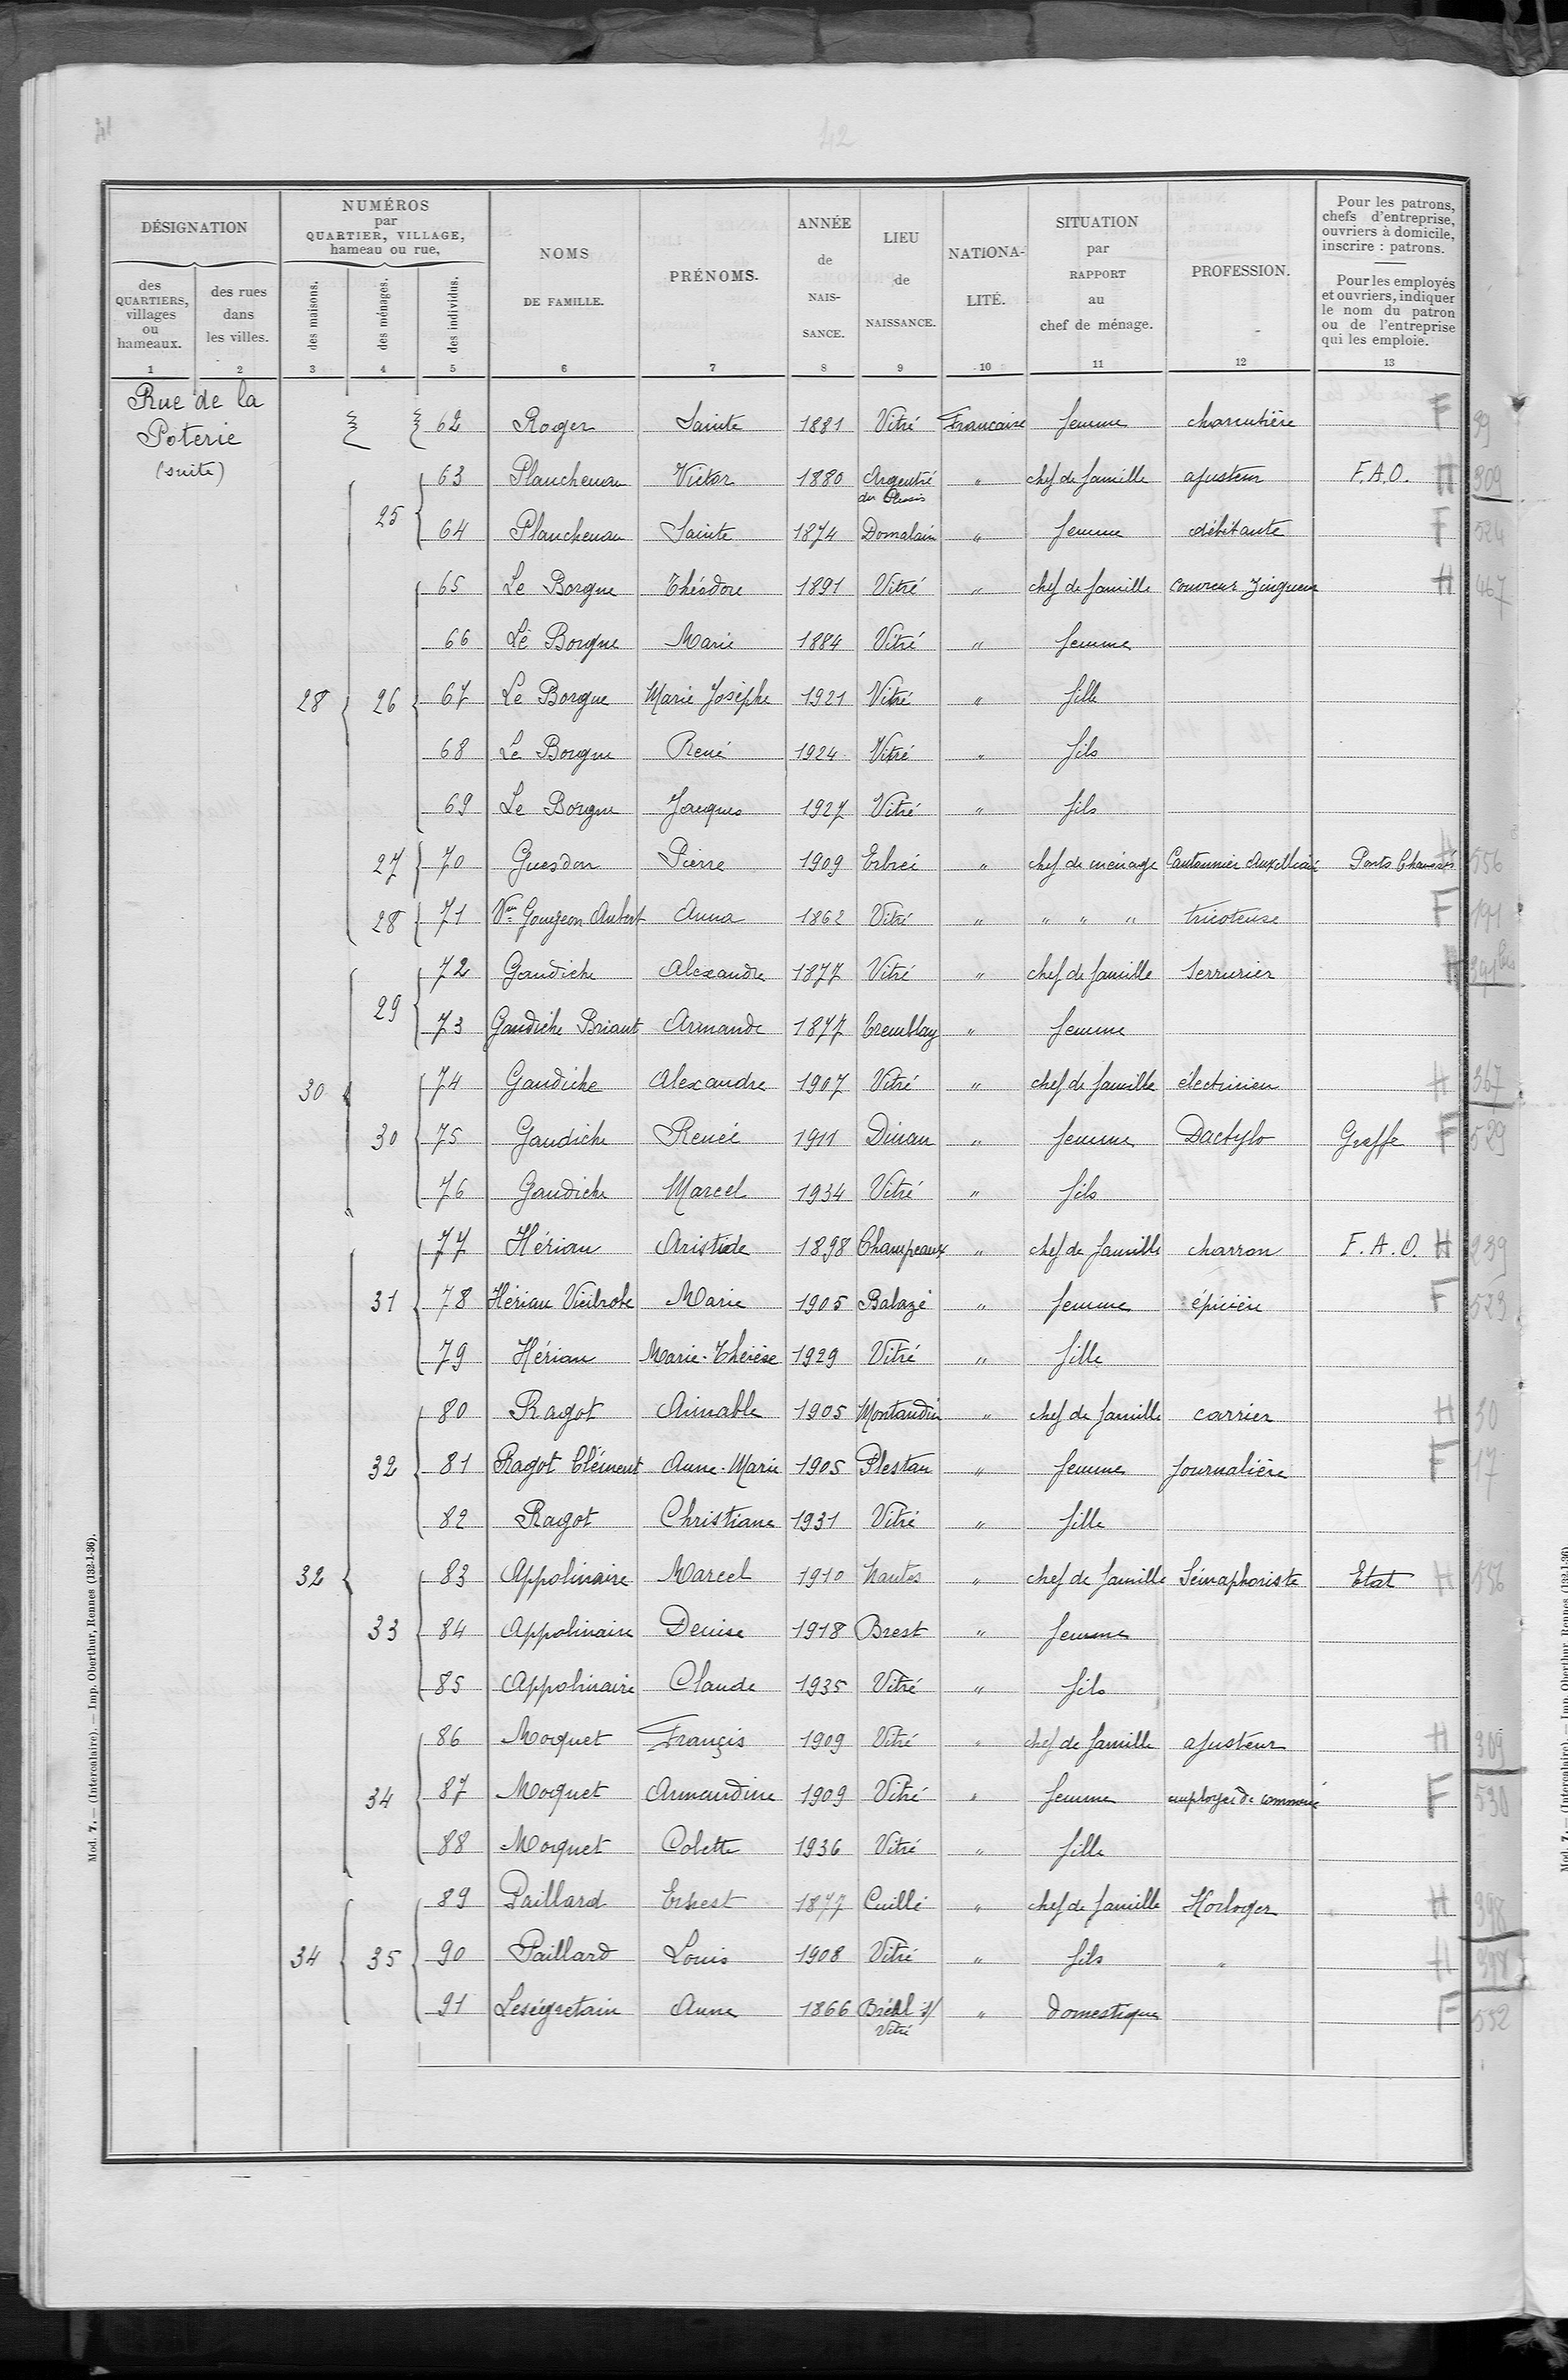 42
DÉSIGNATION
des QUARTIERS, villages ou hameaux.
des rues dans les villes.
NUMÉROS par QUARTIER, VILLAGE, hameau ou rue,
des maisons.
des ménages.
des individus.
NOMS DE FAMILLE.
PRÉNOMS.
ANNÉE de NAIS- SANCE.
LIEU de NAISSANCE.
NATIONA- LITÉ.
SITUATION par RAPPORT au chef de ménage.
PROFESSION.
Pour les patrons, chefs d'entreprise, ouvriers à domicile, inscrire : patrons.
Pour les employés et ouvriers, indiquer le nom du patron ou de l'entreprise qui les emploie.
1 2 3 4 5 6 7 8 9 10 11 12 13
Rue de la
Poterie
(suite)
62 Roger Sainte 1881 Vitré Francaise femme charcutière F 39
63 Planchenau Victor 1880 Argentré du Plessis " chef de famille ajusteur F.A.O. H 309
25
64 Planchenau Sainte 1874 Domalain " femme débitante F 524
65 Le Borgne Théodore 1891 Vitré " chef de famille couvreur zingueur H 467
66 Le Borgne Marie 1884 Vitré " femme
28 26 67 Le Borgne Marie Josèphe 1921 Vitré " fille
68 Le Borgne René 1924 Vitré " fils
69 Le Borgne Jacques 1927 Vitré " fils
27 70 Guesdon Pierre 1909 Erbrée " chef de ménage Cantonnier Auxilliaire Ponts Chaussées H 556
28 71 Vve Gougeon Aubert Anna 1862 Vitré " " " " tricoteuse F 191
72 Gaudiche Alexandre 1877 Vitré " chef de famille serrurier H 391 bis
29
73 Gaudiche Briant Armande 1877 Tremblay " femme
30 74 Gaudiche Alexandre 1907 Vitré " chef de famille électricien H 367
30 75 Gaudiche Renée 1911 Dinan " femme Dactylo Greffe F 529
76 Gaudiche Marcel 1934 Vitré " fils
77 Hériau Aristide 1898 Champeaux " chef de famille charron F.A.O. H 239
31 78 Hériau Vieilrobe Marie 1905 Balazé " femme épicière F 523
79 Hériau Marie-Thérèse 1929 Vitré " fille
80 Ragot Aimable 1905 Montaudin " chef de famille carrier H 30
32 81 Ragot Clément Anne-Marie 1905 Plestan " femme journalière F 17
82 Ragot Christiane 1931 Vitré " fille
32 83 Appolinaire Marcel 1910 Nantes " chef de famille Sémaphoriste Etat H 556
33 84 Appolinaire Denise 1918 Brest " femme
85 Appolinaire Claude 1935 Vitré " fils
86 Moquet Françis 1909 Vitré " chef de famille ajusteur H 309
34 87 Moquet Armandine 1909 Vitré " femme employée de commerce F 530
88 Moquet Colette 1936 Vitré " fille
89 Paillard Ernest 1877 Cuillé " chef de famille Horloger H 398
34 35 90 Paillard Louis 1908 Vitré " fils " H 398
91 Leségretain Anne 1866 Bréal s/ Vitré " domestique F 552
Mod. 7. — (Intercalaire). — Imp. Oberthur, Rennes (132-1-36).
Mod. 7. — (Intercalaire). — Imp. Oberthur, Rennes (132-1-36).